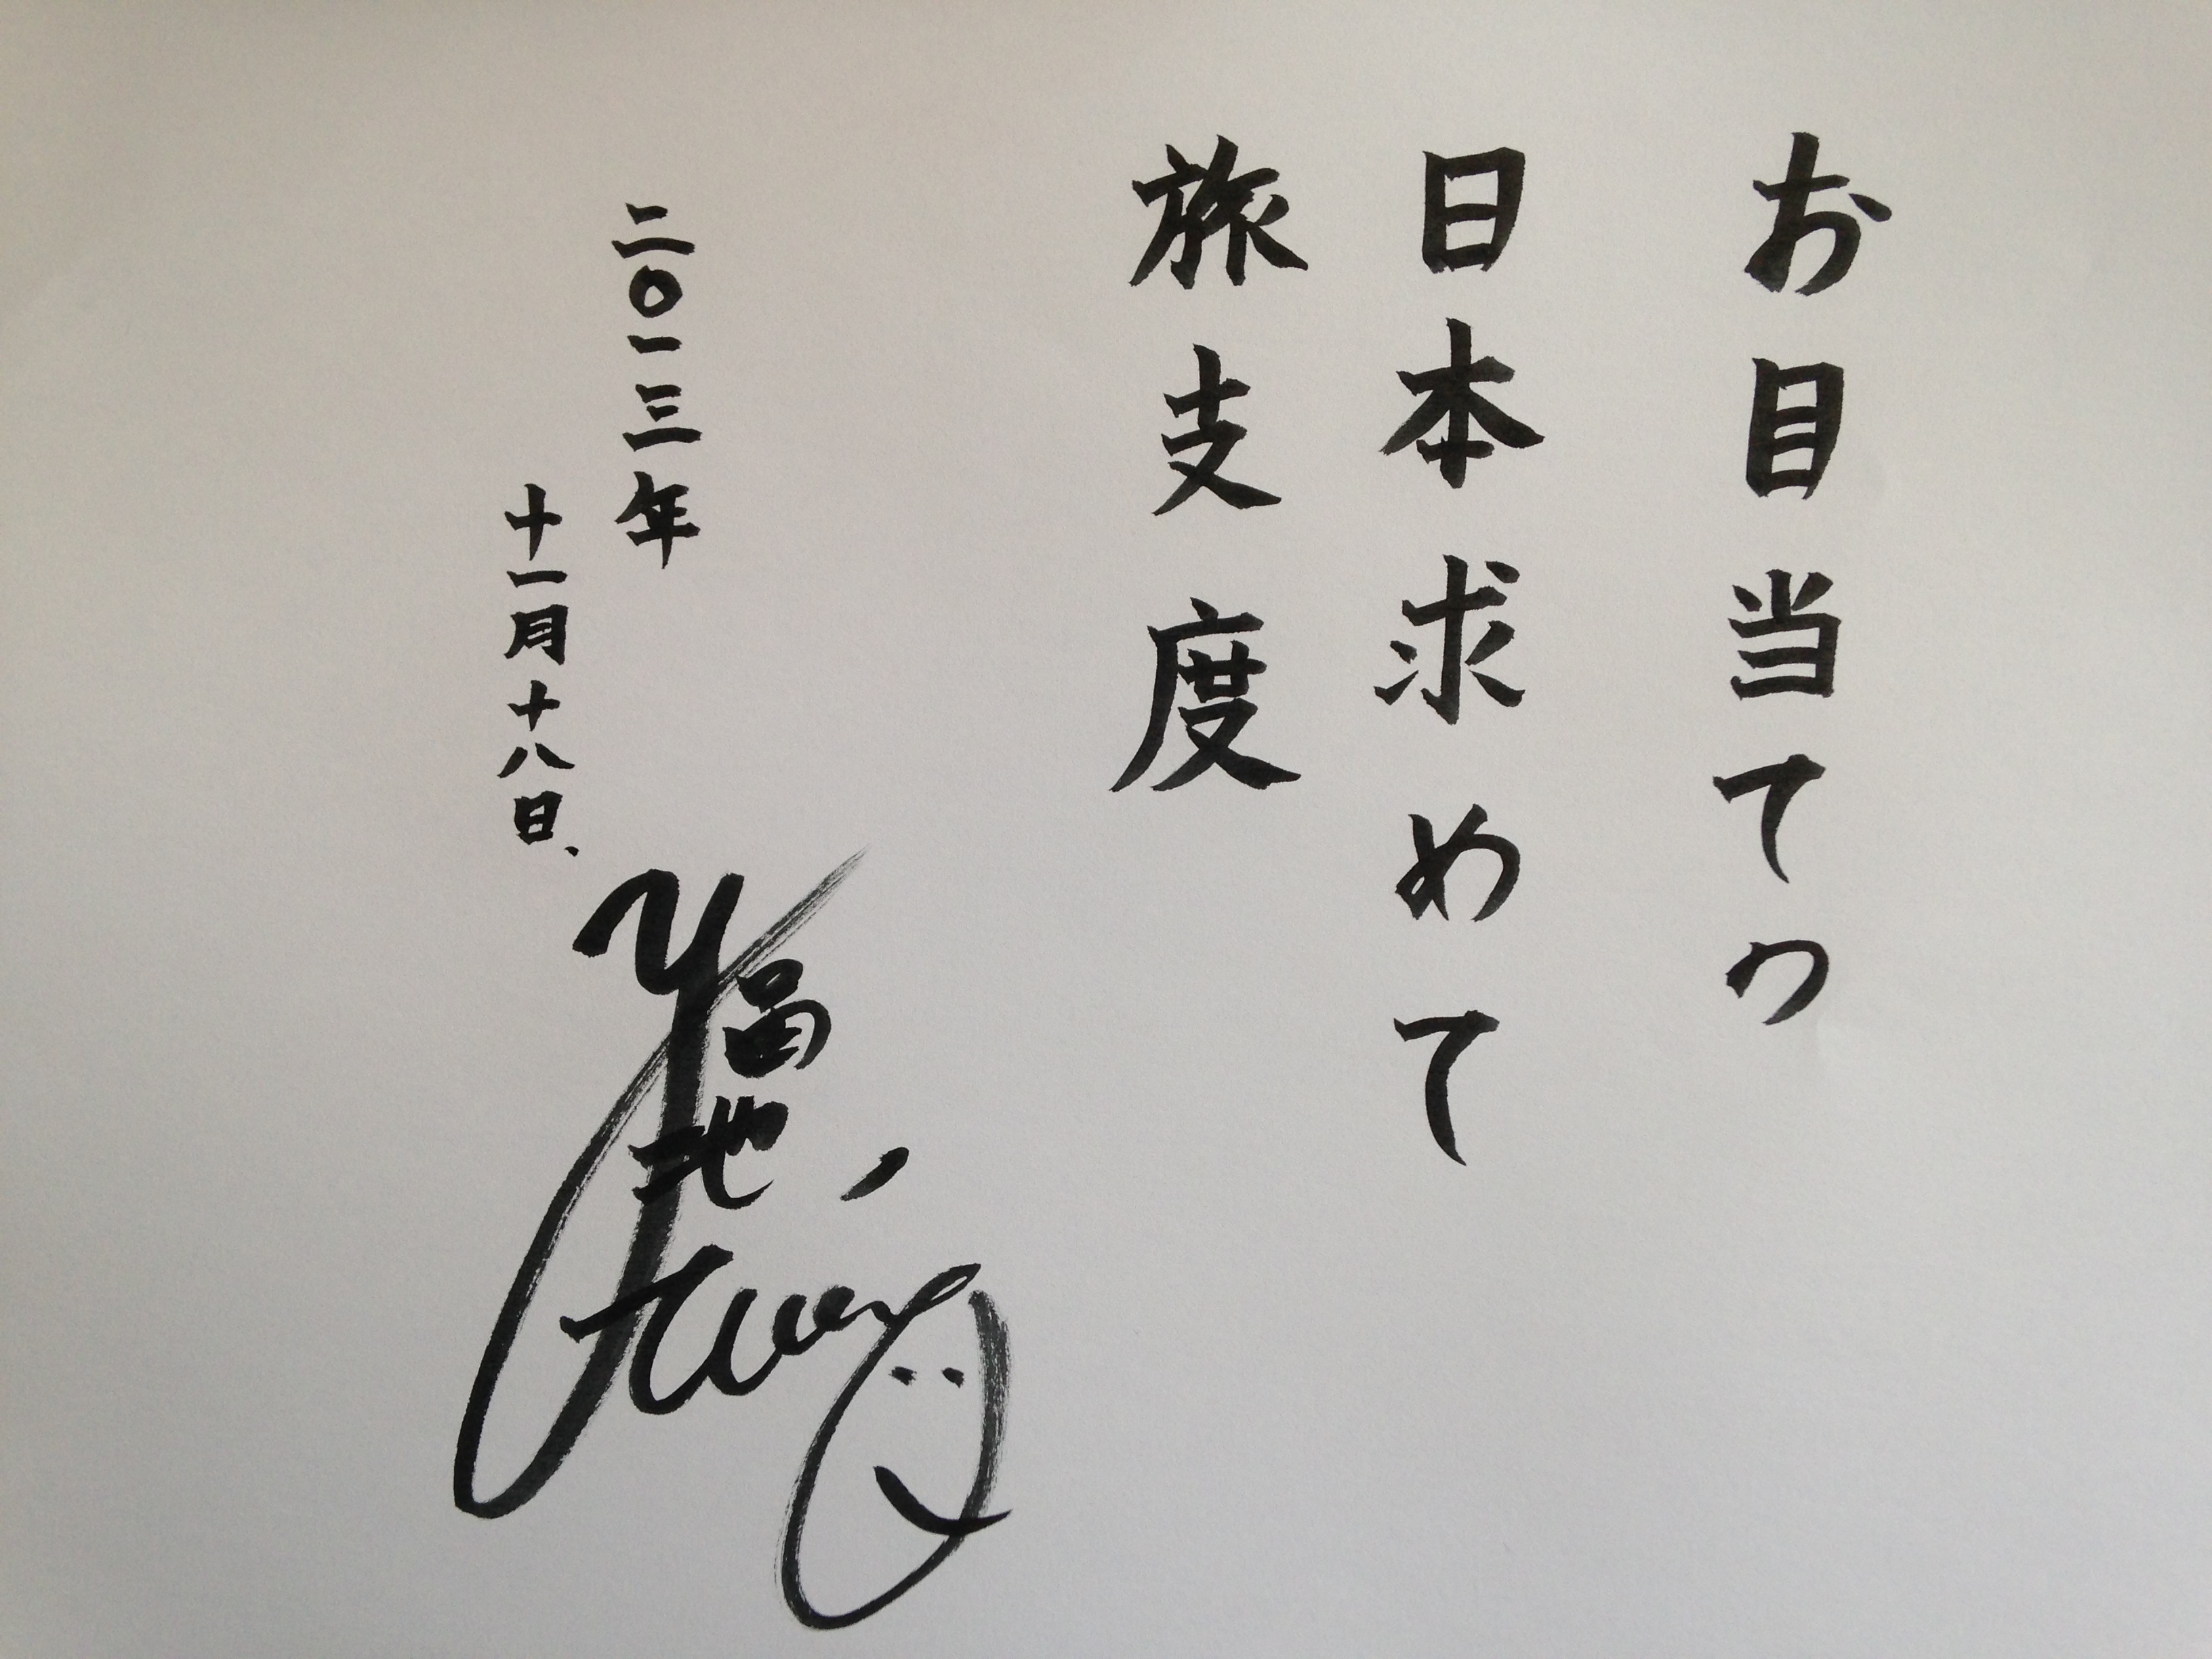 お目当てつ
日本求めて
旅支度
二〇一三年
十一月十八日、
福地